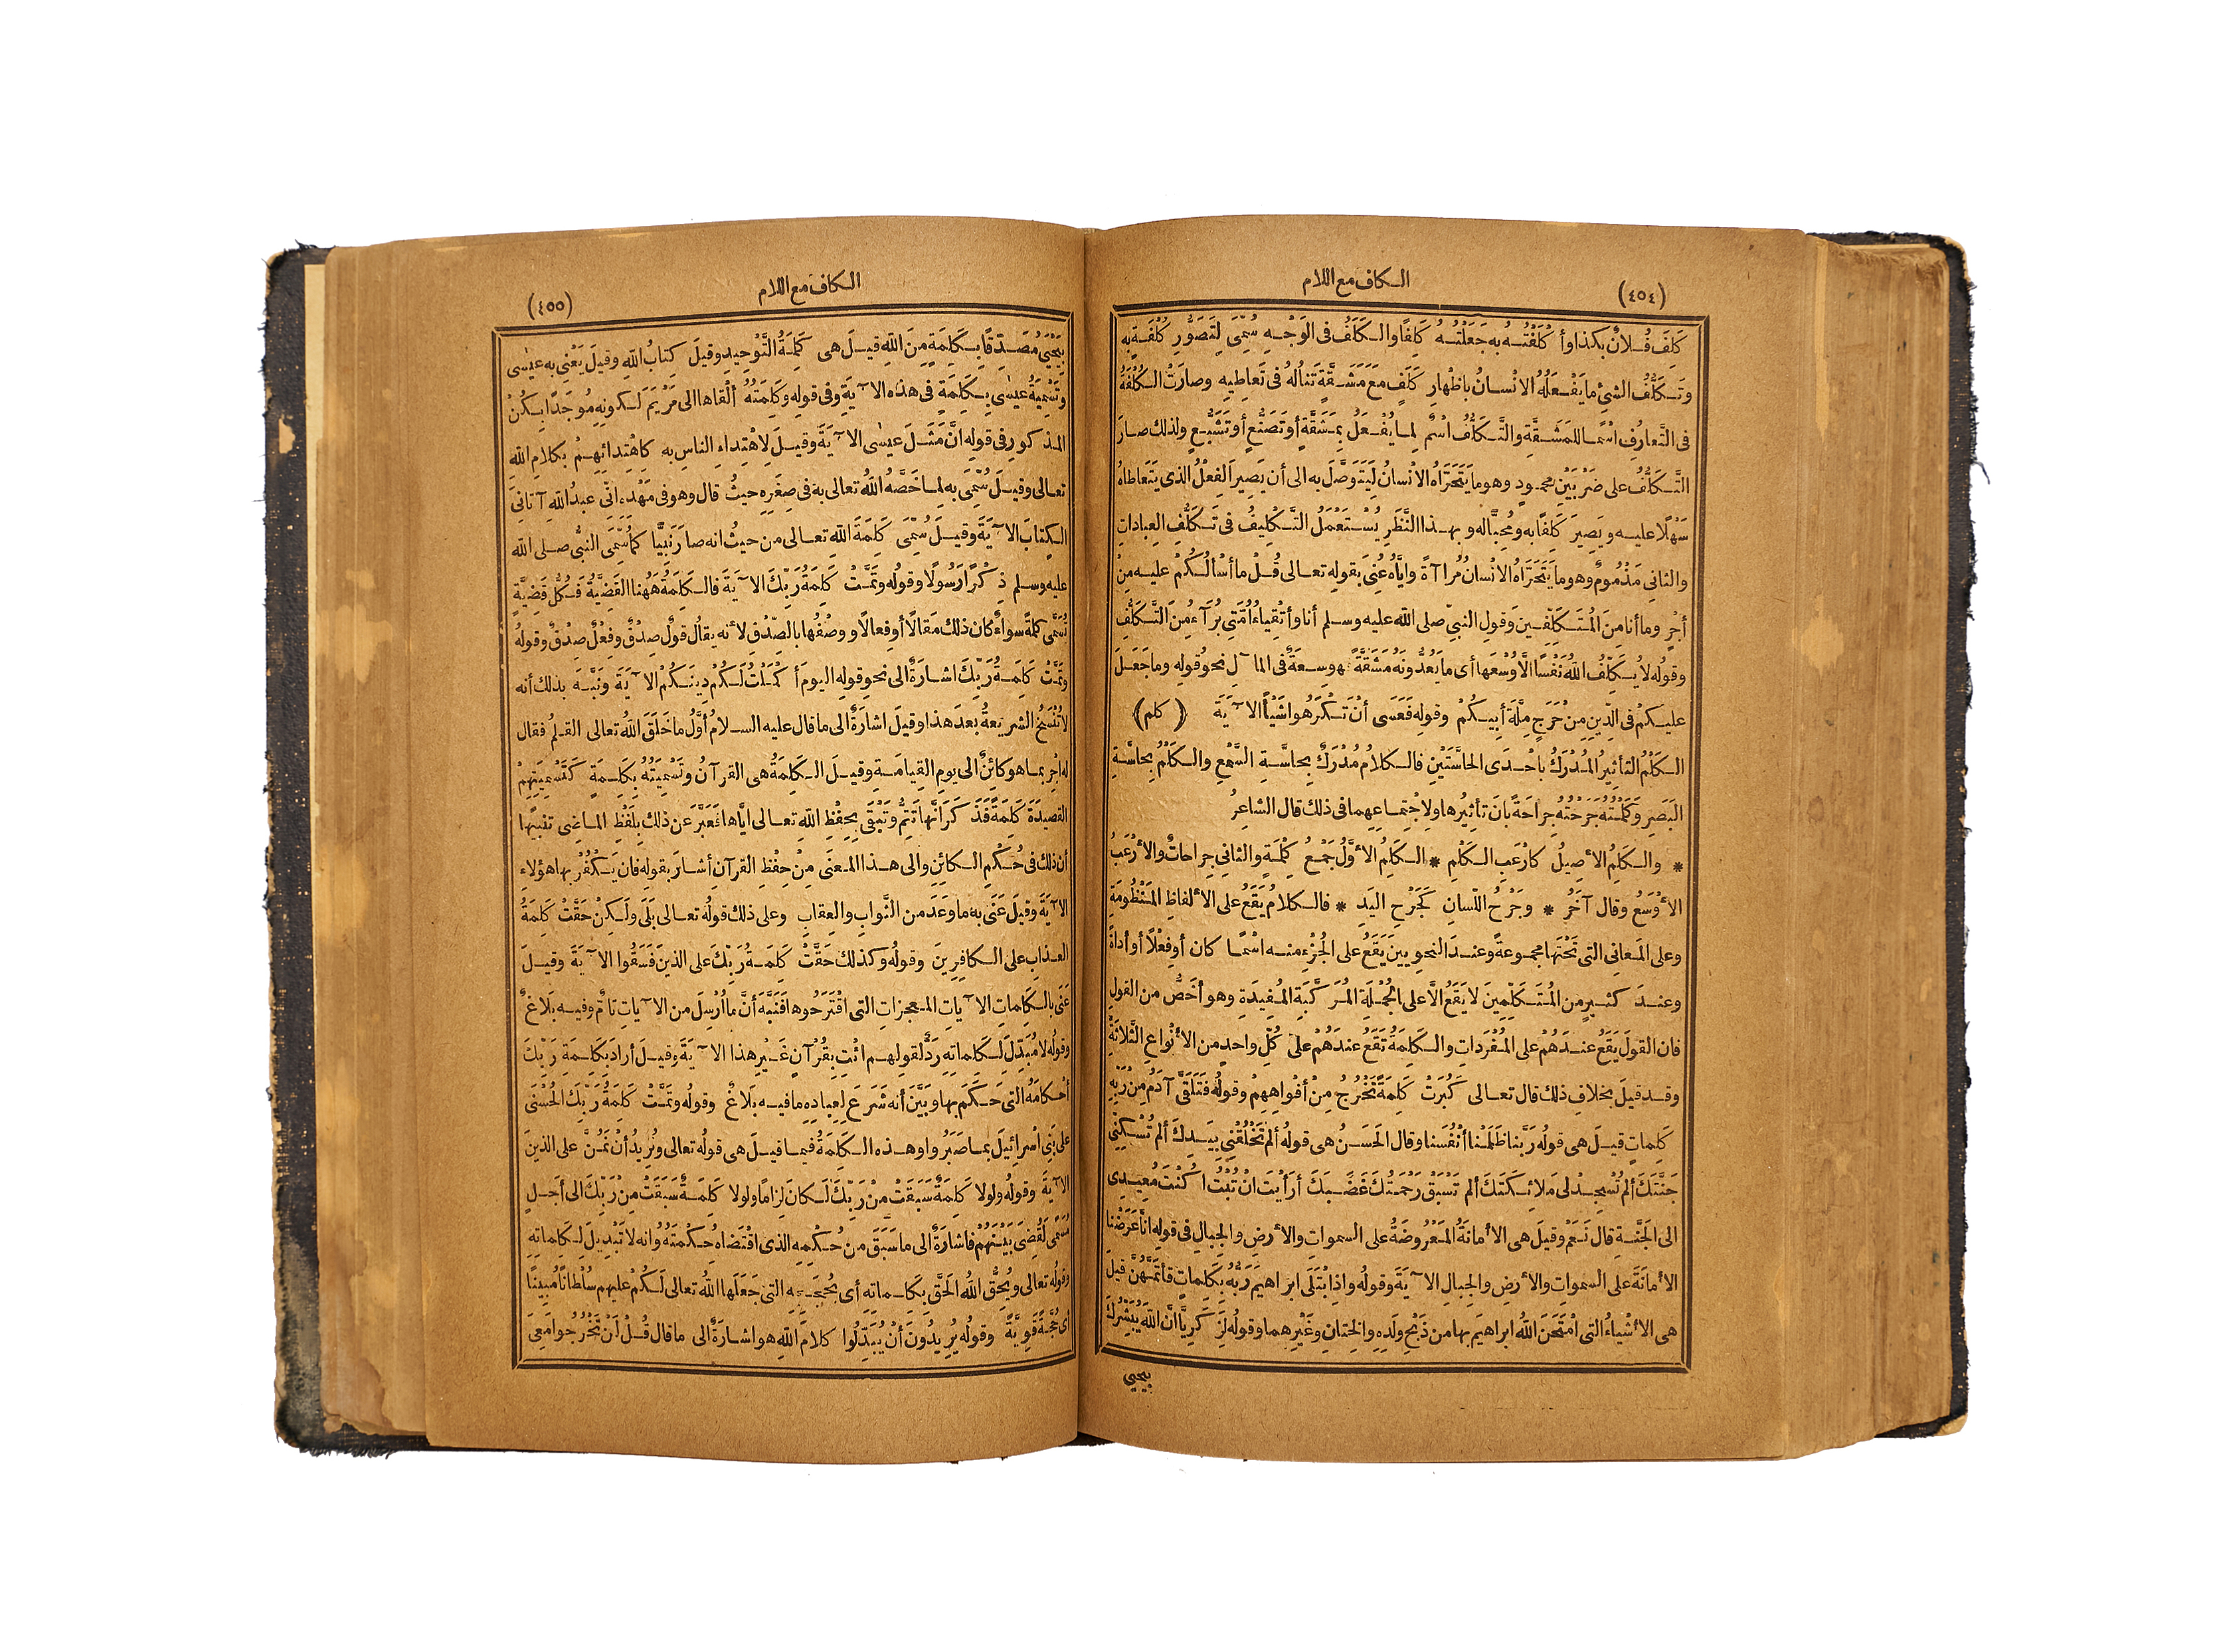 (٤٥٤)
الكاف مع اللام
كَلِفَ فُلانٌ بكذا وأَكْلَفْتُهُ به جَعَلْتُهُ كَلِفًا والكَلَفُ فى الوَجْهِ سُمِّىَ لِتَصَوُّرِ كُلْفَةٍ به
وتَكَلُّفُ الشئِ ما يَفْعَلُهُ الانْسانُ باظْهارِ كَلَفٍ مَعَ مَشَقَّةٍ تنالُهُ فى تَعاطِيهِ وصارَتْ الكُلْفَةُ
فى التَّعارُفِ اسْمًا للمَشَقَّةِ والتَّكَلُّفُ اسْمٌ لِما يُفْعَلُ بِمَشَقَّةٍ أو تَصَنُّعٍ أو تَشَبُّعٍ ولذلك صارَ
التَّكَلُّفُ على ضَرْبَيْنِ محمودٍ وهو ما يَتَحَرَّاهُ الانْسانُ لِيَتَوَصَّلَ به الى أن يَصِيرَ الفِعْلُ الذى يَتَعاطاهُ
سَهْلًا عليه ويَصِيرَ كَلِفًا به ومُحِبًّا له وبهذا النَّظَرِ يُسْتَعْمَلُ التَّكْلِيفُ فى تَكَلُّفِ العِباداتِ
والثانى مَذْمُومٌ وهو ما يَتَحَرَّاهُ الانْسانُ مُرا آةً وايَّاهُ عُنِىَ بقوله تعالى قُلْ ما أسْألُكُمْ عليه مِنْ
أجْرٍ وما أنا مِنَ المُتَكَلِّفِينَ وقولِ النبىِّ صلى الله عليه وسلم أنا وأتْقِياءُ أُمَّتِى بُرَآءُ مِنَ التَّكَلُّفِ
وقولُه لا يُكَلِّفُ اللهُ نَفْسًا الَّا وُسْعَها أى ما يَعُدُّونَهُ مَشَقَّةً فهو سِعَةٌ فى الما ٓلِ نحوُ قولِهِ وما جَعَلَ
عليكمْ فى الدِّينِ مِنْ حَرَجٍ مِلَّةَ أبِيكُمْ وقولِهِ فَعَسَى أنْ تَكْرَهُوا شَيْأً الا ٓيَةَ ﴿ كلم ﴾
الكَلْمُ التأثِيرُ المُدْرَكُ باحْدَى الحاسَّتَيْنِ فالكلامُ مُدْرَكٌ بحاسَّةِ السَّمْعِ والكَلْمُ بحاسَّةِ
البَصَرِ وكَلَمْتُهُ جَرَحْتُهُ جِراحَةً بانَ تأثِيرُها ولِاجْتِماعِهِما فى ذلك قال الشاعِرُ
* والكَلِمُ الأصِيلُ كأرْعَبِ الكَلْمِ * الكَلِمُ الأوَّلُ جَمْعُ كِلْمَةٍ والثانِى جِراحاتٌ والأرْعَبُ
الأوْسَعُ وقال آخَرُ * وجَرْحُ اللّسانِ كَجَرْحِ اليَدِ * فالكلامُ يَقَعُ على الألفاظِ المَنْظُومَةِ
وعلى المَعانِى التى تَحْتَها مجموعةً وعندَ النحويينَ يَقَعُ على الجُزْءِ منه اسْمًا كان أو فِعْلًا أو أداةً
وعندَ كثيرٍ من المُتَكَلِّمِينَ لا يَقَعُ الَّا على الجُمْلَةِ المُرَكَّبَةِ المُفِيدَةِ وهو أخَصُّ من القولِ
فان القولَ يَقَعُ عندَهُمْ على المُفْرَداتِ والكَلِمَةُ تَقَعُ عندَهُمْ على كُلِّ واحدٍ من الأنْواعِ الثَّلاثَةِ
وقد قيلَ بخلافِ ذلك قال تعالى كَبُرَتْ كَلِمَةً تَخْرُجُ مِنْ أفْواهِهِمْ وقولُهُ فَتَلَقَّى آدَمُ مِنْ رَبِّهِ
كَلِماتٍ قيلَ هى قولُه رَبَّنا ظَلَمْنا أنْفُسَنا وقال الحَسَنُ هى قولُهُ ألم تَخْلُقْنِى بِيَدِكَ ألم تُسْكِنِّى
جَنَّتَكَ ألم تُسْجِدْ لى مَلائِكَتَكَ ألم تَسْبِقْ رَحْمَتُكَ غَضَبَكَ أرَأيْتَ انْ تُبْتُ أكُنْتَ مُعِيدِى
الى الجَنَّةِ قال نَعَمْ وقيلَ هى الأمانَةُ المَعْرُوضَةُ على السمواتِ والأرضِ والجبالِ فى قولِهِ انَّا عَرَضْنا
الأمانَةَ على السمواتِ والأرضِ والجبالِ الا ٓيَةَ وقولُه واذِ ابْتَلَى ابراهيمَ رَبُّهُ بِكَلِماتٍ فأتَمَّهُنَّ قيلَ
هى الأشْياءُ التى امْتَحَنَ اللهُ ابراهيمَ بها من ذَبْحِ ولَدِهِ والخِتانِ وغَيْرِهِما وقولُه لِزَكَرِيَّا انَّ اللهَ يُبَشِّرُكَ
بيحيى
(٤٥٥)
الكاف مع اللام
بِيَحْيَى مُصَدِّقًا بِكَلِمَةٍ مِنَ اللهِ قيلَ هى كَلِمَةُ التَّوْحِيدِ وقيلَ كِتابُ اللهِ وقيلَ يَعْنِى به عيسٰى
وتَسْمِيَةُ عيسٰى بِكَلِمَةٍ فى هذه الا ٓيَةِ وفى قولِه وكَلِمَتُهُ ألْقاها الى مَرْيَمَ لكونِهِ مُوجَدًا بِكُنْ
المذكورِ فى قولِهِ انَّ مَثَلَ عيسٰى الا ٓيَةَ وقيلَ لِاهْتِداءِ الناسِ به كاهْتِدائِهِمْ بكلامِ اللهِ
تعالى وقيلَ سُمِّىَ به لِما خَصَّهُ اللهُ تعالى به فى صِغَرِهِ حيثُ قال وهو فى مَهْدِهِ انِّى عبدُ اللهِ آتانِىَ
الكِتابَ الا ٓيَةَ وقيلَ سُمِّىَ كَلِمَةَ اللهِ تعالى من حيثُ انه صارَ نَبِيًّا كما سُمِّىَ النبىُّ صلى الله
عليه وسلم ذِكْرًا رَسُولًا وقولُه وتَمَّتْ كَلِمَةُ رَبِّكَ الا ٓيَةَ فالكَلِمَةُ هَهُنا القَضِيَّةُ فكُلُّ قَضِيَّةٍ
تُسَمَّى كَلِمَةً سواءٌ كان ذلك مَقالًا أو فِعالًا ووصْفُها بالصِّدْقِ لأنه يقالُ قولٌ صِدْقٌ وفِعْلٌ صِدْقٌ وقولُه
وتَمَّتْ كَلِمَةُ رَبِّكَ اشارَةٌ الى نحوِ قولِه اليومَ أكْمَلْتُ لَكُمْ دِينَكُمْ الا ٓيَةَ ونَبَّهَ بذلك أنه
لا تُنْسَخُ الشريعةُ بعدَ هذا وقيلَ اشارَةٌ الى ما قال عليه السلامُ أوَّلُ ما خَلَقَ اللهُ تعالى القلمُ فقال
له اجْرِ بما هو كائِنٌ الى يومِ القِيامَةِ وقيلَ الكَلِمَةُ هى القرآنُ وتَسْمِيَتُهُ بِكَلِمَةٍ كَتَسْمِيَتِهِمْ
القصيدَةَ كَلِمَةً فَذَكَرَ انَّها تَتِمُّ وتَبْقَى بِحِفْظِ اللهِ تعالى ايَّاها فَعَبَّرَ عن ذلك بِلَفْظِ الماضى تنبيهًا
أن ذلك فى حُكْمِ الكائِنِ والى هذا المعنَى مِنْ حِفْظِ القرآنِ أشارَ بقولِه فان يَكْفُرْ بها هؤلاءِ
الا ٓيَةَ وقيلَ عَنَى به ما وعَدَ من الثَّوابِ والعِقابِ وعلى ذلك قولُه تعالى بَلَى ولَكِنْ حَقَّتْ كَلِمَةُ
العذابِ على الكافِرِينَ وقولُه وكذلك حَقَّتْ كَلِمَةُ رَبِّكَ على الذينَ فَسَقُوا الا ٓيَةَ وقيلَ
عَنَى بالكَلِماتِ الا ٓياتِ المعجزاتِ التى اقْتَرَحُوها فَنَبَّهَ أنَّ ما اُرْسِلَ من الا ٓياتِ تامٌّ وفيه بَلاغٌ
وقولُه لا مُبَدِّلَ لِكَلِماتِهِ رَدٌّ لقولهم ائْتِ بِقُرْآنٍ غَيْرِ هذا الا ٓيَةَ وقيلَ أرادَ بكَلِمَةِ رَبِّكَ
أحْكامَهُ التى حَكَمَ بها وبَيَّنَ أنه شَرَعَ لِعِبادِهِ ما فيه بَلاغٌ وقولُه وتَمَّتْ كَلِمَةُ رَبِّكَ الحُسْنَى
على بَنِى اسْرائِيلَ بما صَبَرُوا وهذه الكَلِمَةُ فيما قيلَ هى قولُه تعالى ونُرِيدُ أنْ نَمُنَّ على الذينَ
الا ٓيَةَ وقولُه ولولا كَلِمَةٌ سَبَقَتْ مِنْ رَبِّكَ لَكانَ لِزامًا ولولا كَلِمَةٌ سَبَقَتْ مِنْ رَبِّكَ الى أجَلٍ
مُسَمًّى لَقُضِىَ بَيْنَهُمْ فاشارَةٌ الى ما سَبَقَ من حُكْمِهِ الذى اقْتَضاهُ حِكْمَتُهُ وانه لا تَبْدِيلَ لِكَلِماتِهِ
وقولُه تعالى ويُحِقُّ اللهُ الحَقَّ بِكَلِماتِهِ أى بِحُجَجِهِ التى جَعَلَها اللهُ تعالى لَكُمْ عليهم سُلْطانًا مُبِينًا
أى حُجَّةً قَوِيَّةً وقولُه يُرِيدُونَ أنْ يُبَدِّلُوا كلامَ اللهِ هو اشارَةٌ الى ما قال قُلْ لَنْ تَخْرُجُوا مَعِىَ